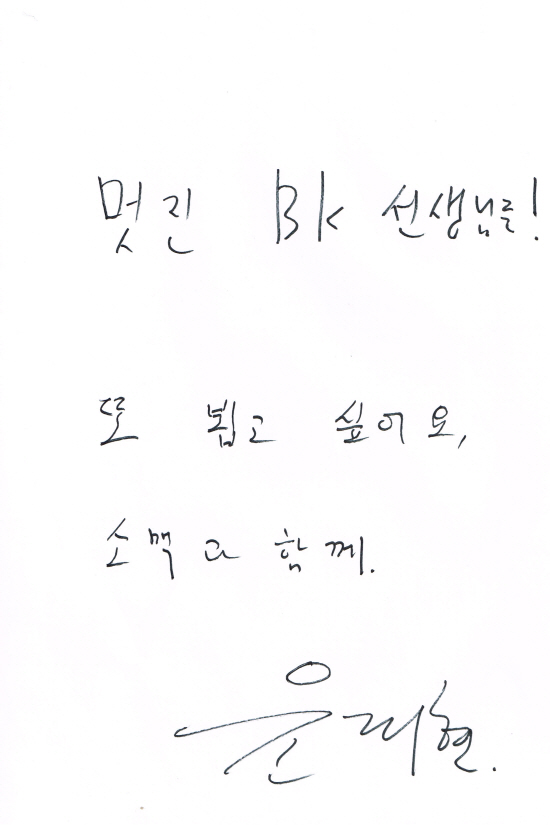 멋진 BK 선생님들!
또 뵙고 싶어요,
소맥과 함께.